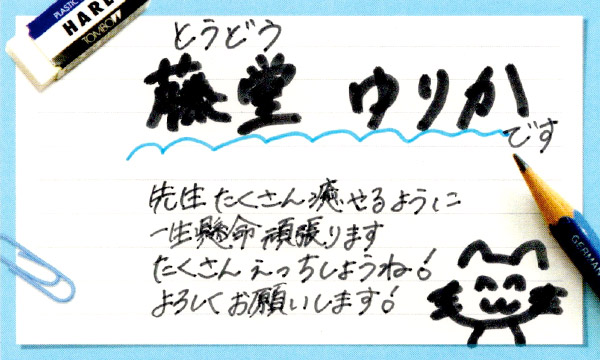 PLASTIC
HARD
TOMBOW
とうどう
藤堂 ゆりか
です
先生たくさん癒せるように
一生懸命頑張ります
たくさんえっちしようね!
よろしくお願いします!
GERMANY